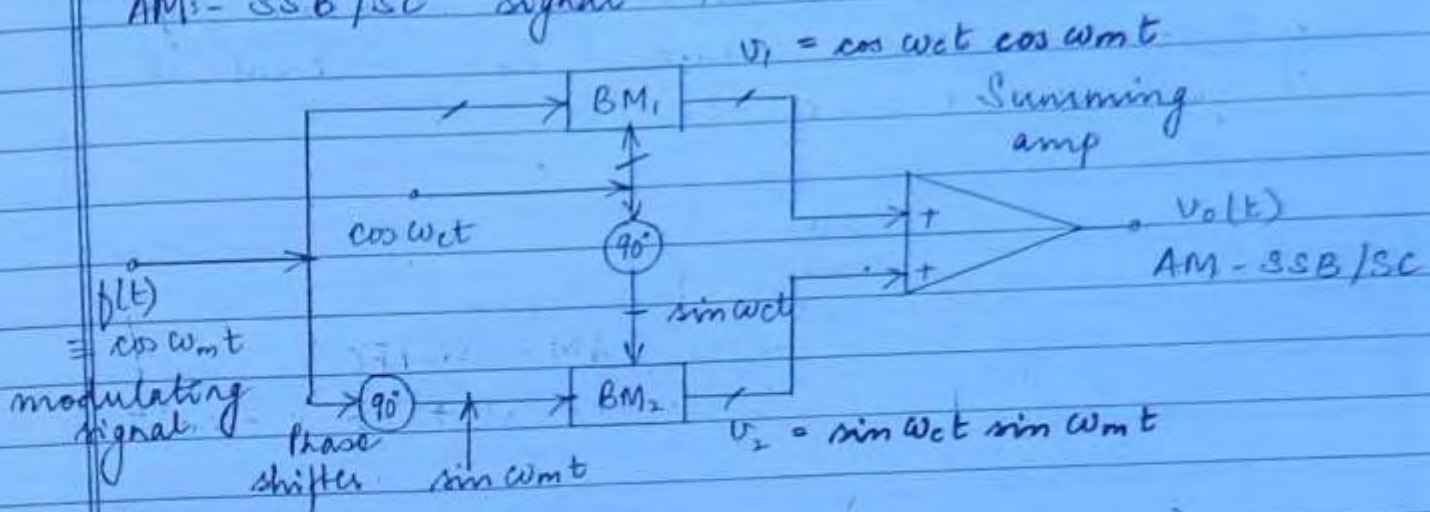 AM:- SSB/SC signal
v₁ = cos ωct cos ωmt
BM₁
Summing
amp
cos ωct
90°
+
v₀(t)
AM - SSB/SC
f(t)
= cos ωmt
modulating
signal
+
sin ωct
90°
BM₂
Phase
shifter
sin ωmt
v₂ = sin ωct sin ωmt